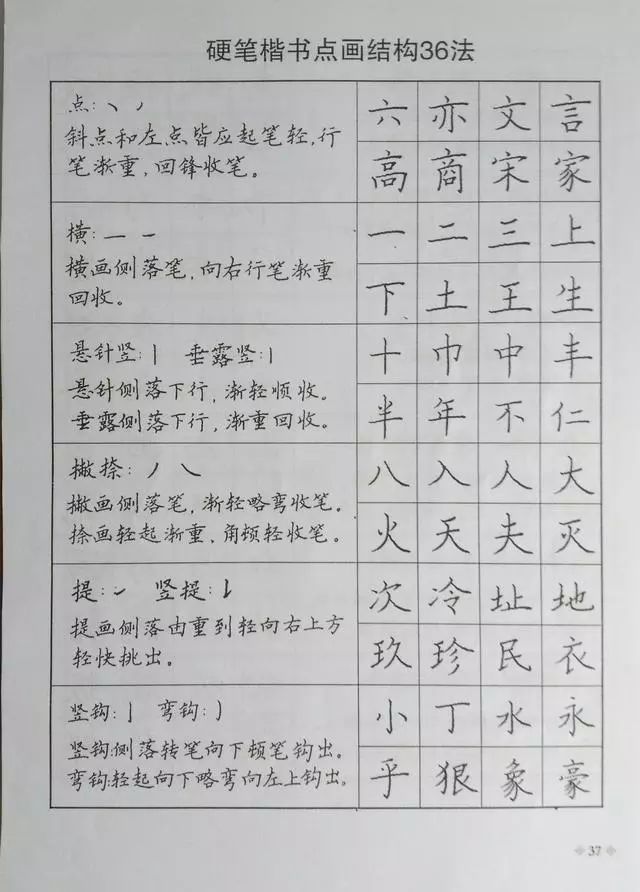 硬笔楷书点画结构36法
点:丶 丿
斜点和左点皆应起笔轻,行
笔渐重,回锋收笔。
六 亦 文 言
高 商 宋 家
横: 一 一
横画侧落笔,向右行笔渐重
回收。
一 二 三 上
下 土 王 生
悬针竖:丨 垂露竖:丨
悬针侧落下行,渐轻顺收。
垂露侧落下行,渐重回收。
十 巾 中 丰
半 年 不 仁
撇捺: 丿 ㇏
撇画侧落笔,渐轻略弯收笔。
捺画轻起渐重,角顿轻收笔。
八 入 人 大
火 天 夫 灭
提:㇀ 竖提:𠄌
提画侧落由重到轻向右上方
轻快挑出。
次 冷 址 地
玖 珍 民 衣
竖钩:亅 弯钩:㇁
竖钩:侧落转笔向下顿笔钩出。
弯钩:轻起向下略弯向左上钩出。
小 丁 水 永
乎 狠 象 豪
37